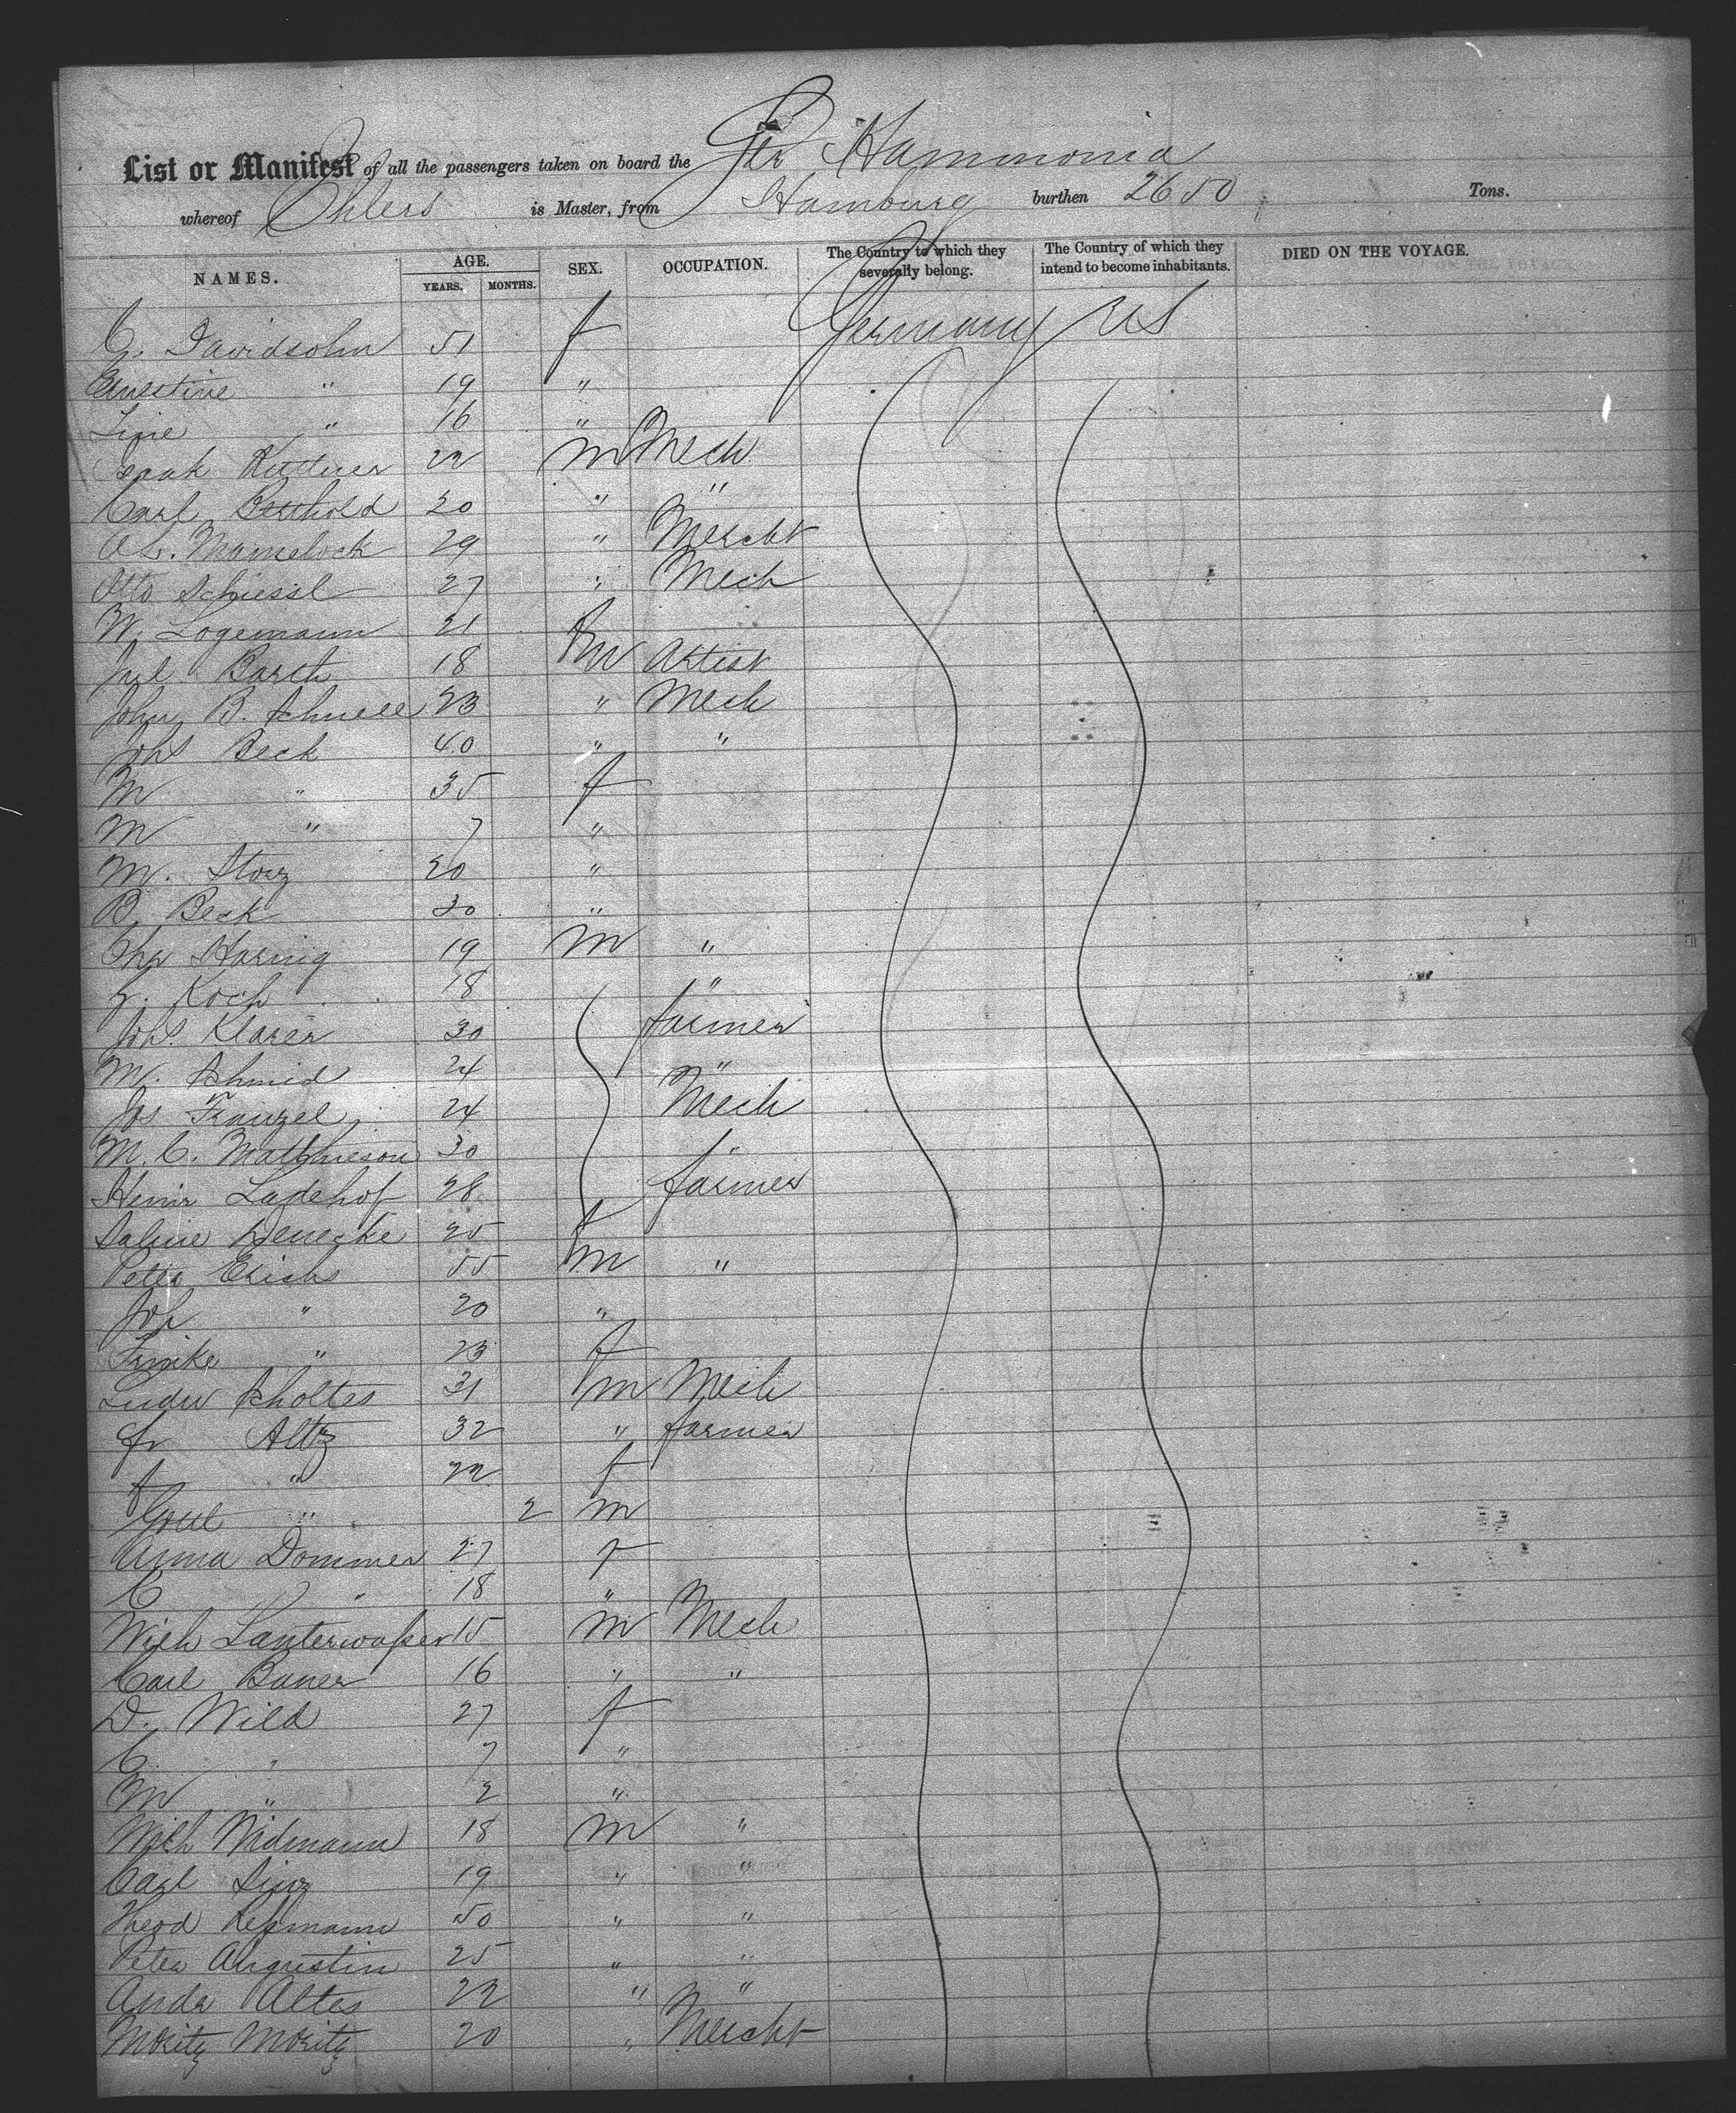 List or Manifest of all the passengers taken on board the Ger Hammonia
whereof Ehlers is Master, from Hamburg burthen 2650 Tons.
NAMES. AGE. YEARS. MONTHS. SEX. OCCUPATION. The Country to which they severally belong. The Country of which they intend to become inhabitants. DIED ON THE VOYAGE.
C. Davidsohn 51 f Germany US
Ernestine " 19 "
Line " 16 "
Isaak 22 m Mech
Carl Berthold 20 " "
Ab. Mamelock 29 " Mercht
Otto Schiessl 27 " Mech
W. Logemann 21 "
Jul Barth 18 m Artist
John B. Schnell 23 " Mech
Johs Beck 40 " "
M " 35 f
M " 7 "
M. Storz 20 "
B. Beck 30 "
Chr Haring 19 m "
G. Koch 18 "
Johs. Klarer 30 farmer
M. Schmid 24 "
Jos Franzel 24 Mech
M. C. Matthiesen 30 "
Heinr Ladehof 28 farmer
Sabine Denecke 25 f
Peter Erichs 55 m "
Joh " 20 "
Finike " 23 f
Ludw Scholtes 31 m Mech
Fr Altz 32 " farmer
A " 22 f
" 2 m
Anna Dommer 27 f
C " 18 "
Wilh Lauterwasser 15 m Mech
Carl Bauer 16 " "
D. Wild 27 f
C. " 7 "
M " 2 "
Wilh Widmann 18 m "
Carl Sinz 19 " "
Theod Lessmann 50 " "
Peter Augustin 25 " "
Andr Altes 22 " "
Moritz Moritz 20 " Mercht